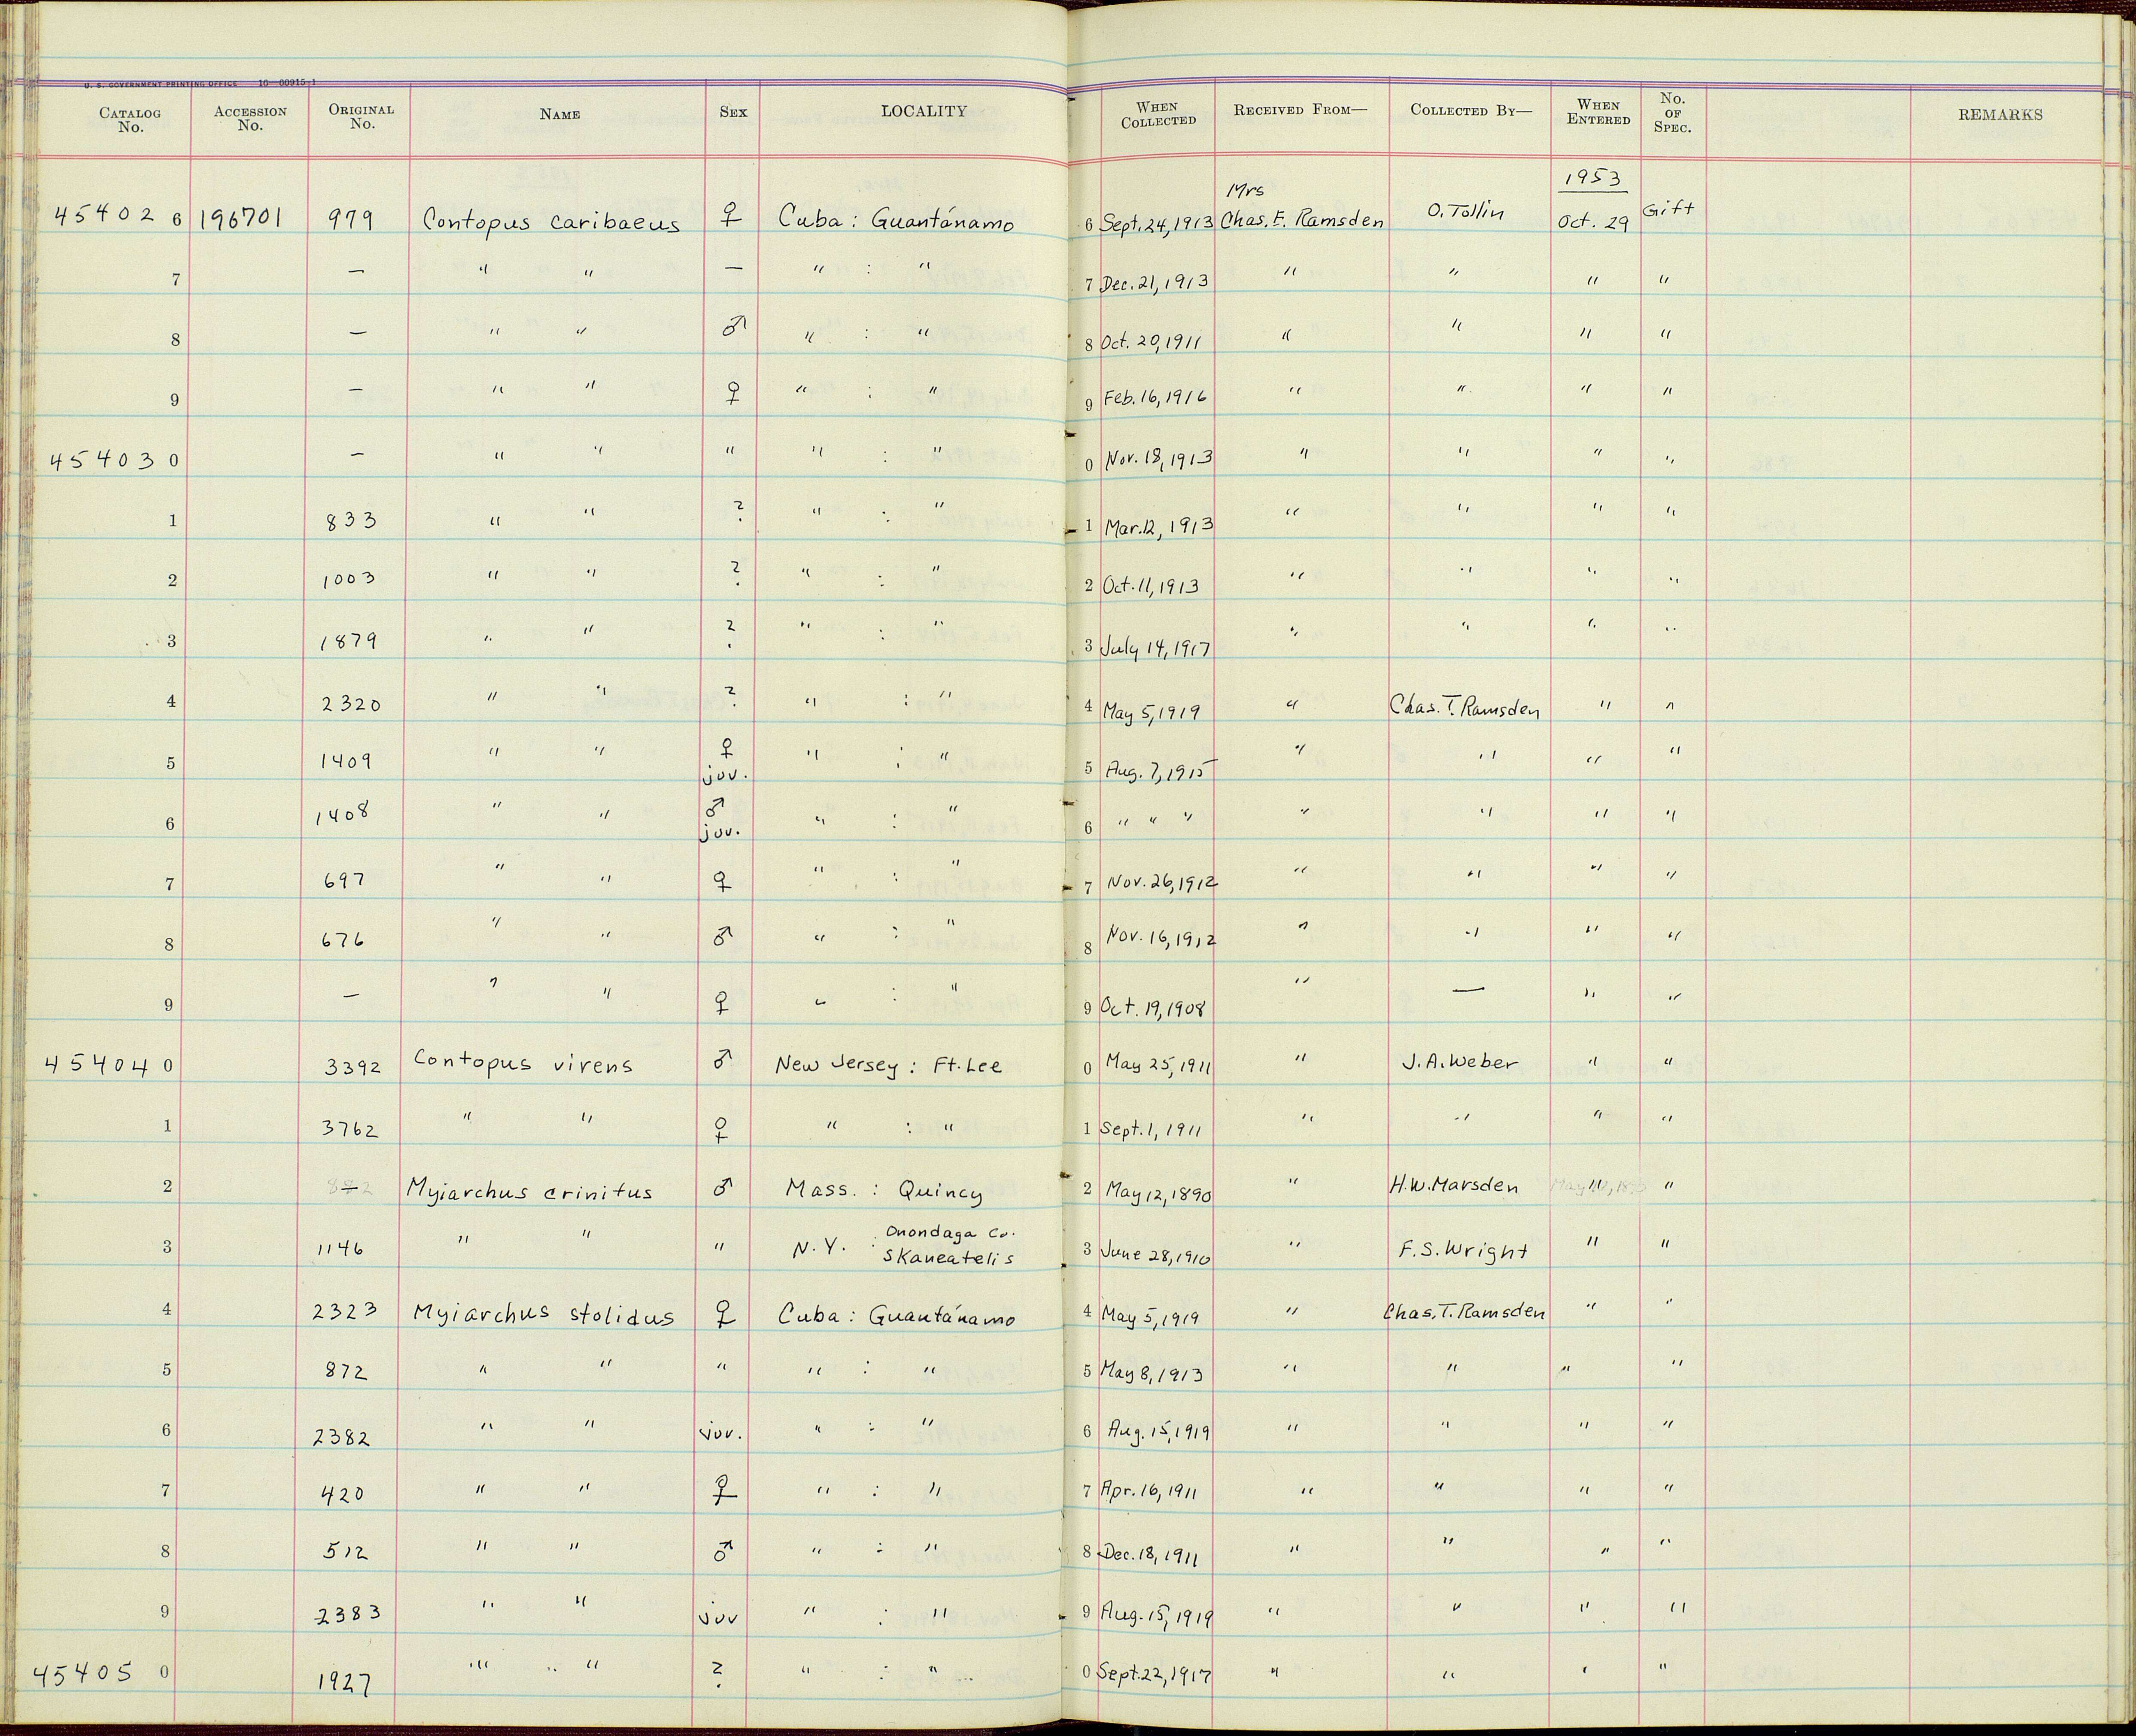 U. S. GOVERNMENT PRINTING OFFICE 16—60915-1
CATALOG No. ACCESSION No. ORIGINAL No. NAME SEX LOCALITY WHEN COLLECTED RECEIVED FROM— COLLECTED BY— WHEN ENTERED No. OF SPEC. REMARKS
1953
454026 196701 979 Contopus caribaeus ♀ Cuba : Guantánamo 6 Sept. 24, 1913 Mrs Chas. E. Ramsden O. Tollin Oct. 29 Gift
7 — " " — " : " 7 Dec. 21, 1913 " " " "
8 — " " ♂ " : " 8 Oct. 20, 1911 " " " "
9 — " " ♀ " : " 9 Feb. 16, 1916 " " " "
454030 — " " " " : " 0 Nov. 18, 1913 " " " "
1 833 " " ? " : " 1 Mar. 12, 1913 " " " "
2 1003 " " ? " : " 2 Oct. 11, 1913 " " " "
3 1879 " " ? " : " 3 July 14, 1917 " " " "
4 2320 " " ? " : " 4 May 5, 1919 " Chas. T. Ramsden " "
5 1409 " " ♀ juv. " : " 5 Aug. 7, 1915 " " " "
6 1408 " " ♂ juv. " : " 6 " " " " " " "
7 697 " " ♀ " : " 7 Nov. 26, 1912 " " " "
8 676 " " ♂ " : " 8 Nov. 16, 1912 " " " "
9 — " " ♀ " : " 9 Oct. 19, 1908 " — " "
454040 3392 Contopus virens ♂ New Jersey : Ft. Lee 0 May 25, 1911 " J. A. Weber " "
1 3762 " " ♀ " : " 1 Sept. 1, 1911 " " " "
2 — Myiarchus crinitus ♂ Mass. : Quincy 2 May 12, 1890 " H. W. Marsden " "
3 1146 " " " N. Y. : Onondaga Co. Skaneatelis 3 June 28, 1910 " F. S. Wright " "
4 2323 Myiarchus stolidus ♀ Cuba : Guantánamo 4 May 5, 1919 " Chas. T. Ramsden " "
5 872 " " " " : " 5 May 8, 1913 " " " "
6 2382 " " juv. " : " 6 Aug. 15, 1919 " " " "
7 420 " " ♀ " : " 7 Apr. 16, 1911 " " " "
8 512 " " ♂ " : " 8 Dec. 18, 1911 " " " "
9 2383 " " juv " : " 9 Aug. 15, 1919 " " " "
454050 1927 " " ? " : " 0 Sept. 22, 1917 " " " "